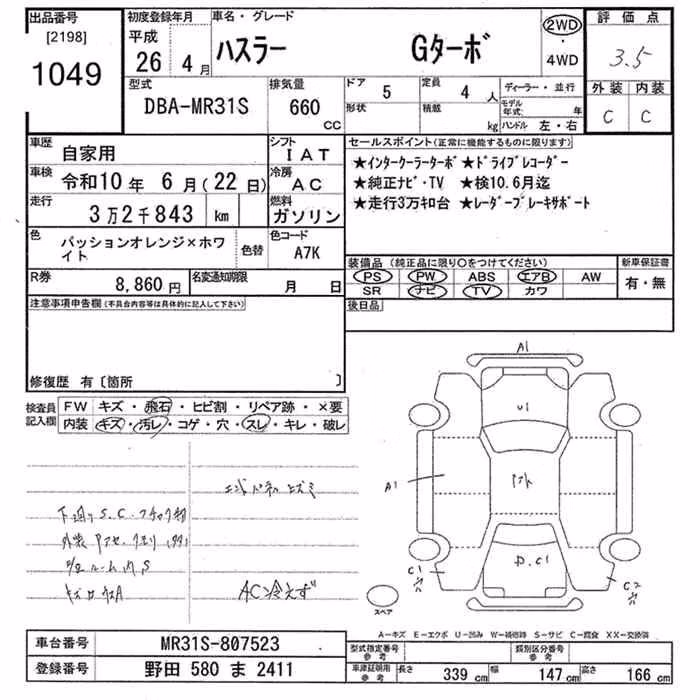 出品番号
[2198]
1049
初度登録年月
平成
26年 4月
車名・グレード
ハスラー Gターボ
2WD
・
4WD
評価点
3.5
外装 内装
C C
型式
DBA-MR31S
排気量
660 CC
ドア 5
定員 4 人
形状
積載 kg
ディーラー・並行
モデル年式 年
ハンドル 左・右
車歴 自家用
シフト IAT
車検 令和10年 6月(22日)
冷房 AC
走行 3万2千843 km
燃料 ガソリン
色 パッションオレンジ×ホワイト
色替
色コード A7K
R券 8,860円
名変通知期限 月 日
セールスポイント(正常に機能するものに限ります)
★インタークーラーターボ★ドライブレコーダー
★純正ナビ・TV ★検10.6月迄
★走行3万キロ台 ★レーダーブレーキサポート
装備品(純正品に限り○をつけてください)
PS PW ABS エアB AW
SR ナビ TV カワ
新車保証書
有・無
後日品
注意事項申告欄(不具合内容等は具体的に記入して下さい)
修復歴 有〔箇所 〕
検査員記入欄
FW キズ・飛石・ヒビ割・リペア跡・×要
内装 キズ・汚レ・コゲ・穴・スレ・キレ・破レ
下廻りS.C.
AC冷えず
A1
U1
A1
D.C1
C1
C2
スペア
A-キズ E-エクボ U-凹み W-補修跡 S-サビ C-腐食 XX-交換済
車台番号 MR31S-807523
登録番号 野田 580 ま 2411
型式指定番号 参考
類別区分番号 参考
車庫証明用 参考
長さ 339 cm 幅 147 cm 高さ 166 cm